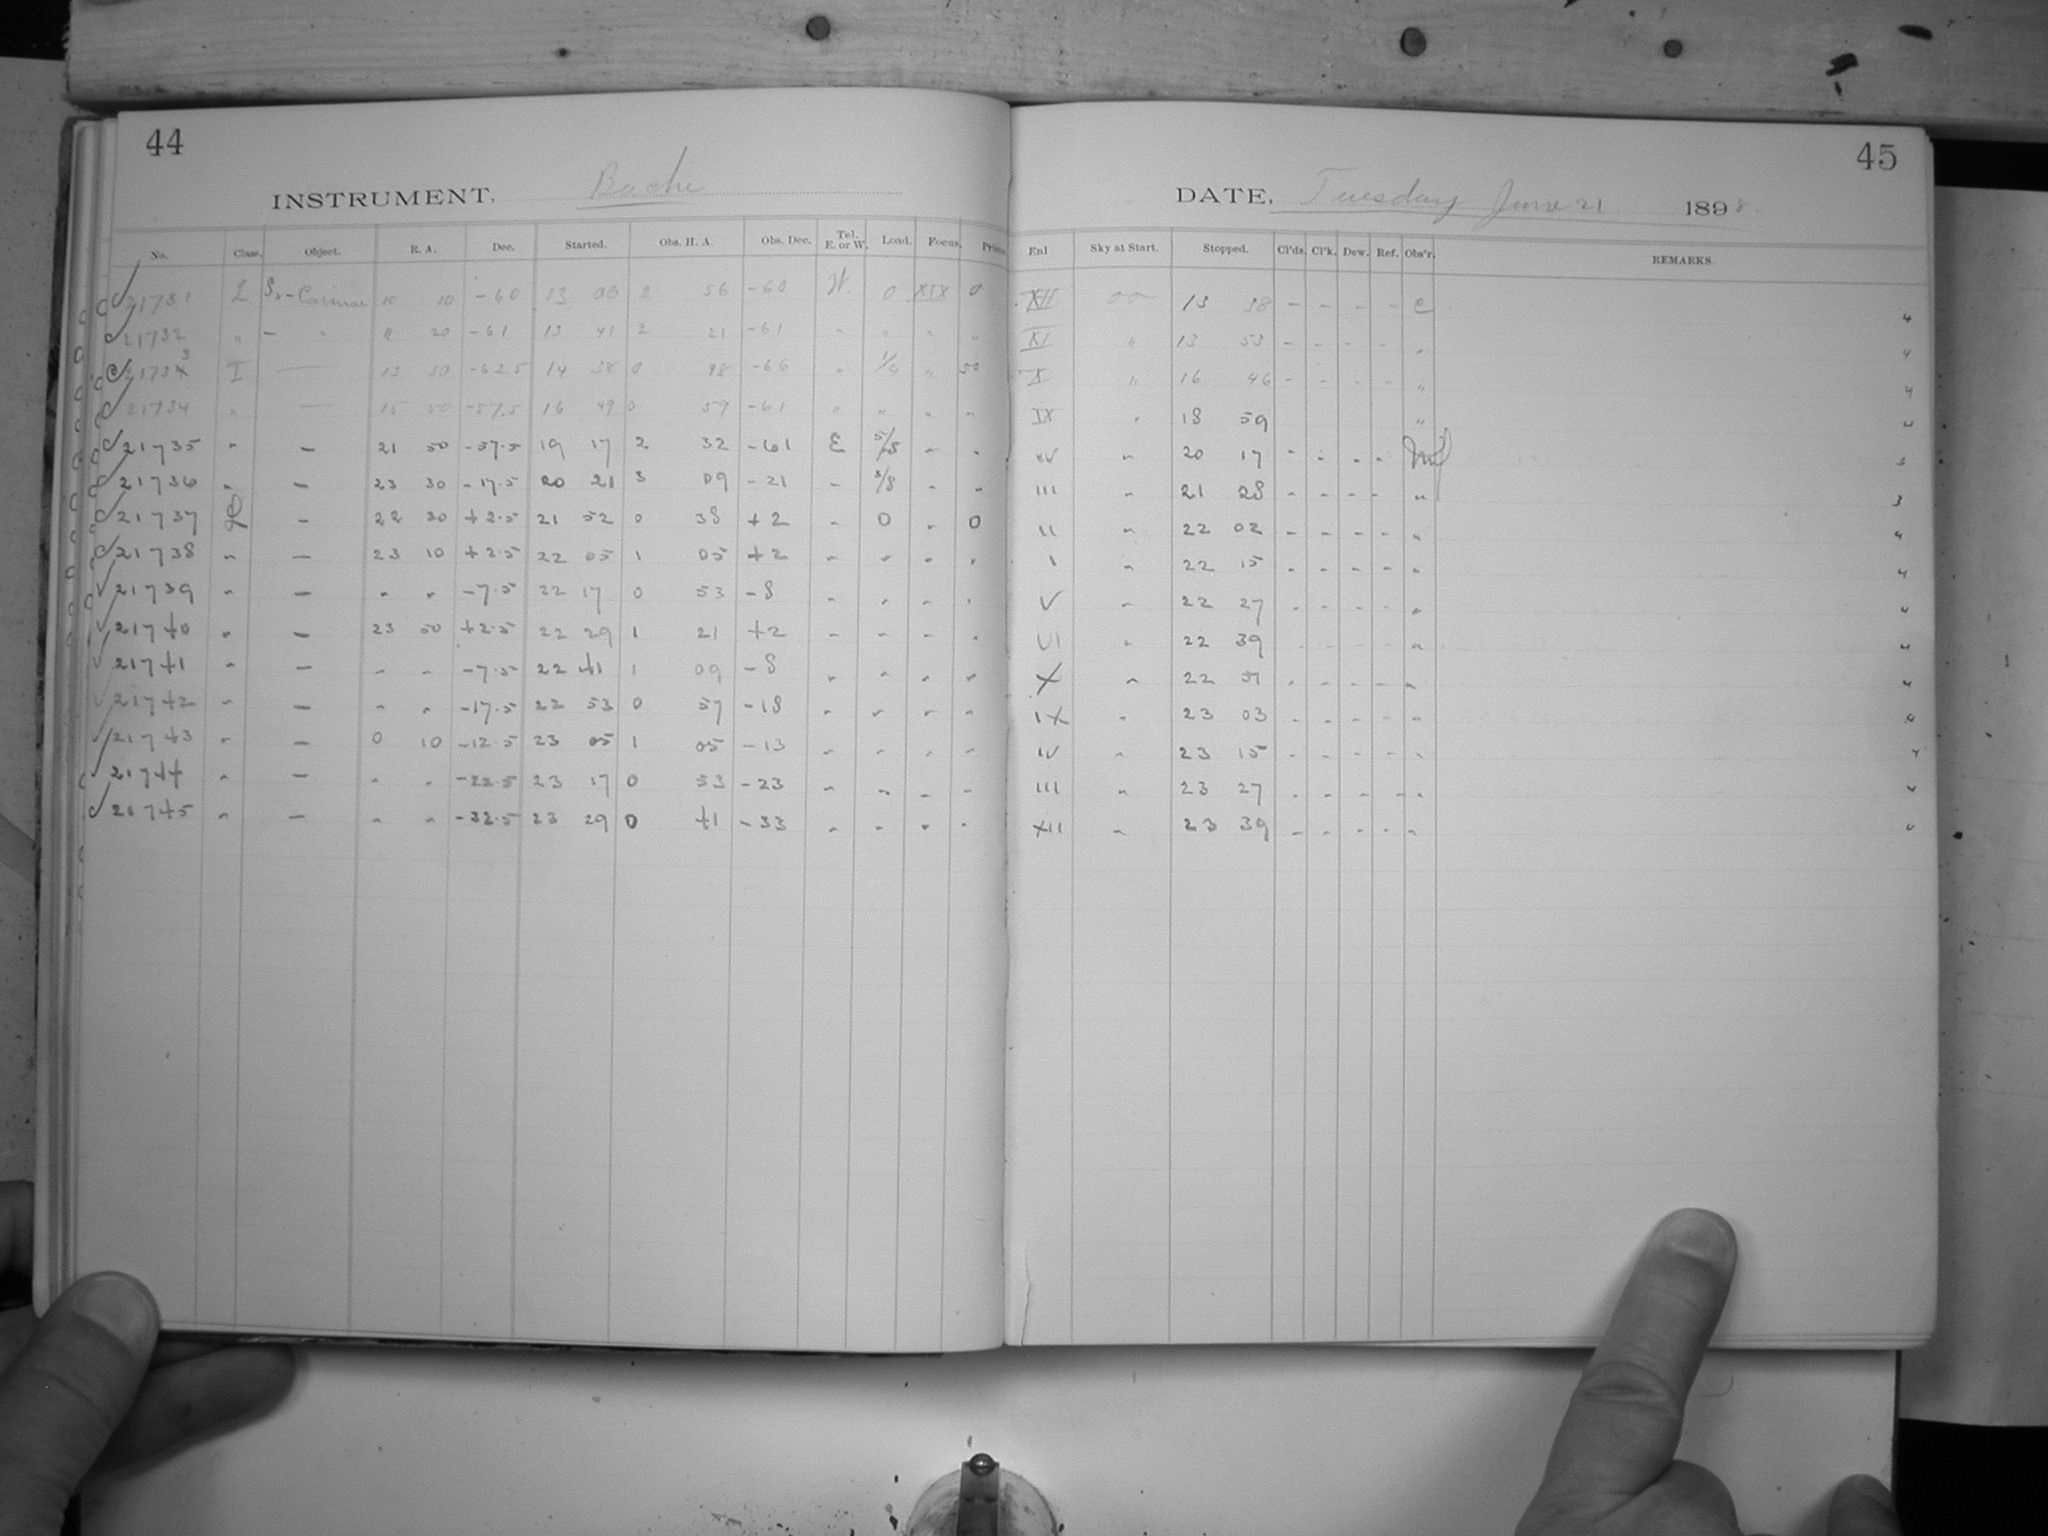 44
INSTRUMENT, Bache
No. Class. Object. R. A. Dec. Started. Obs. H. A. Obs. Dec. Tel. E. or W. Load. Focus. Prism
21731 L 10 10 -60 13 2 56 -60 W. 0 XIX 0
21732 " - " " 20 -61 13 41 2 21 -61 " " " "
21733 I — 13 50 -62.5 14 38 0 48 -66 " 1/4 " 50
21734 " — 15 50 -57.5 16 49 0 59 -61 " " " "
21735 " — 21 50 -57.5 19 17 2 32 -61 E 5/8 " "
21736 " — 23 30 -17.5 20 21 3 09 -21 " 3/8 " "
21737 — 22 30 +2.5 21 52 0 38 +2 " 0 " 0
21738 " — 23 10 +2.5 22 05 1 05 +2 " " " "
21739 " — " " -7.5 22 17 0 53 -8 " " " "
21740 " — 23 50 +2.5 22 29 1 21 +2 " " " "
21741 " — " " -7.5 22 41 1 09 -8 " " " "
21742 " — " " -17.5 22 53 0 57 -18 " " " "
21743 " — 0 10 -12.5 23 05 1 05 -13 " " " "
21744 " — " " -22.5 23 17 0 53 -23 " " " "
21745 " — " " -32.5 23 29 0 41 -33 " " " "
45
DATE, Tuesday June 21 1898.
Enl Sky at Start. Stopped. Cl'ds. Cl'k. Dew. Ref. Obs'r. REMARKS.
XII 00 13 38 - - - - C 4
XI " 13 53 - - - - " 4
X " 16 46 - - - " 4
IX " 18 59 " 4
IV " 20 17 - - - - 3
III " 21 28 - - - - " 3
II " 22 02 - - - - " 4
I " 22 15 - - - - " 4
V " 22 27 - - - - " 4
VI " 22 39 - - - - " 4
X " 22 51 - - - - " 4
IX " 23 03 - - - - " 4
IV " 23 15 - - - - " 4
III " 23 27 - - - - " 4
XII " 23 39 - - - - " 4